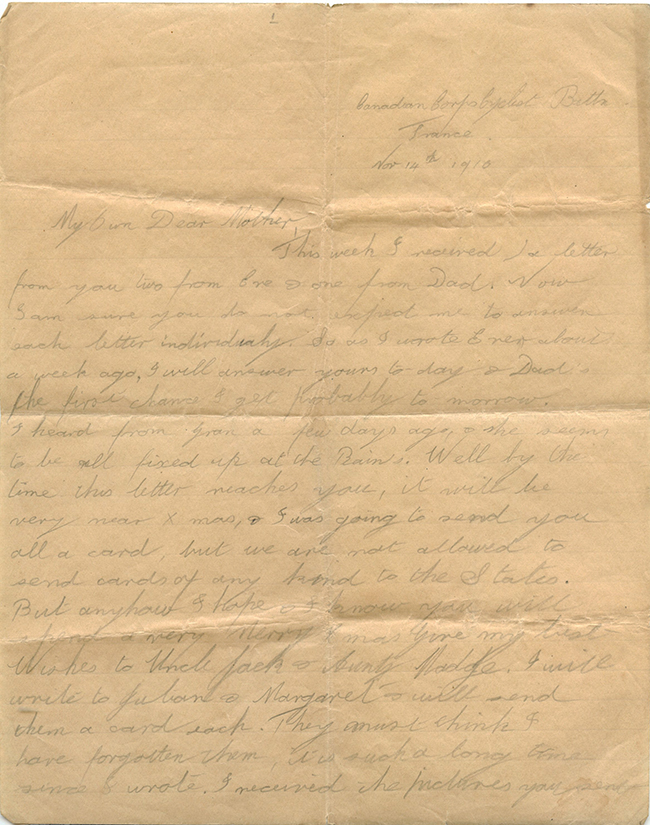 1
Canadian Corps Cyclist Battn
France
Nov 14th 191
My Own Dear Mother,
This week I received letter
from you two from Eve & one from Dad. Now
I am sure you do not expect me to answer
each letter individualy. So as I wrote Ever about
a week ago, I will answer yours to day & Dad's
the first chance I get probably to morrow.
I heard from Gran a few days ago, & she seems
to be all fixed up at the Bain's. Well by the
time this letter reaches you, it will be
very near X mas, & I was going to send you
all a card, but we are not allowed to
send cards of any kind to the States.
But anyhow I hope & I know you will
spend a very Merry Xmas Give my best
Wishes to Uncle Jack & Aunty Madge. I will
write to & Margaret & will send
them a card each. They must think I
have forgotten them, it is such a long time
since I wrote. I received the pictures you sent